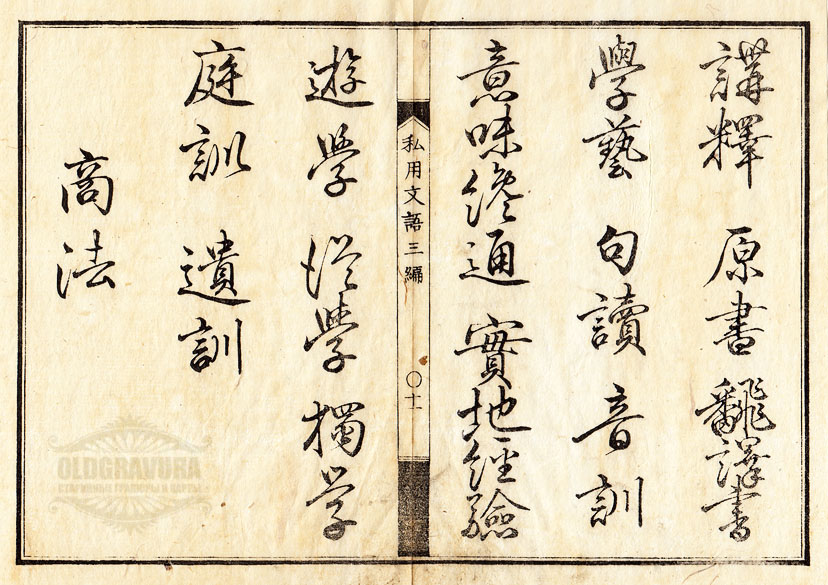 講釋 原書 飜譯書
學藝 句讀 音訓
意味 通 實地經驗
私用文語三編
〇十一
遊學 從學 獨学
庭訓 遺訓
商法
OLDGRAVURA
СТАРИННЫЕ ГРАВЮРЫ И КАРТЫ